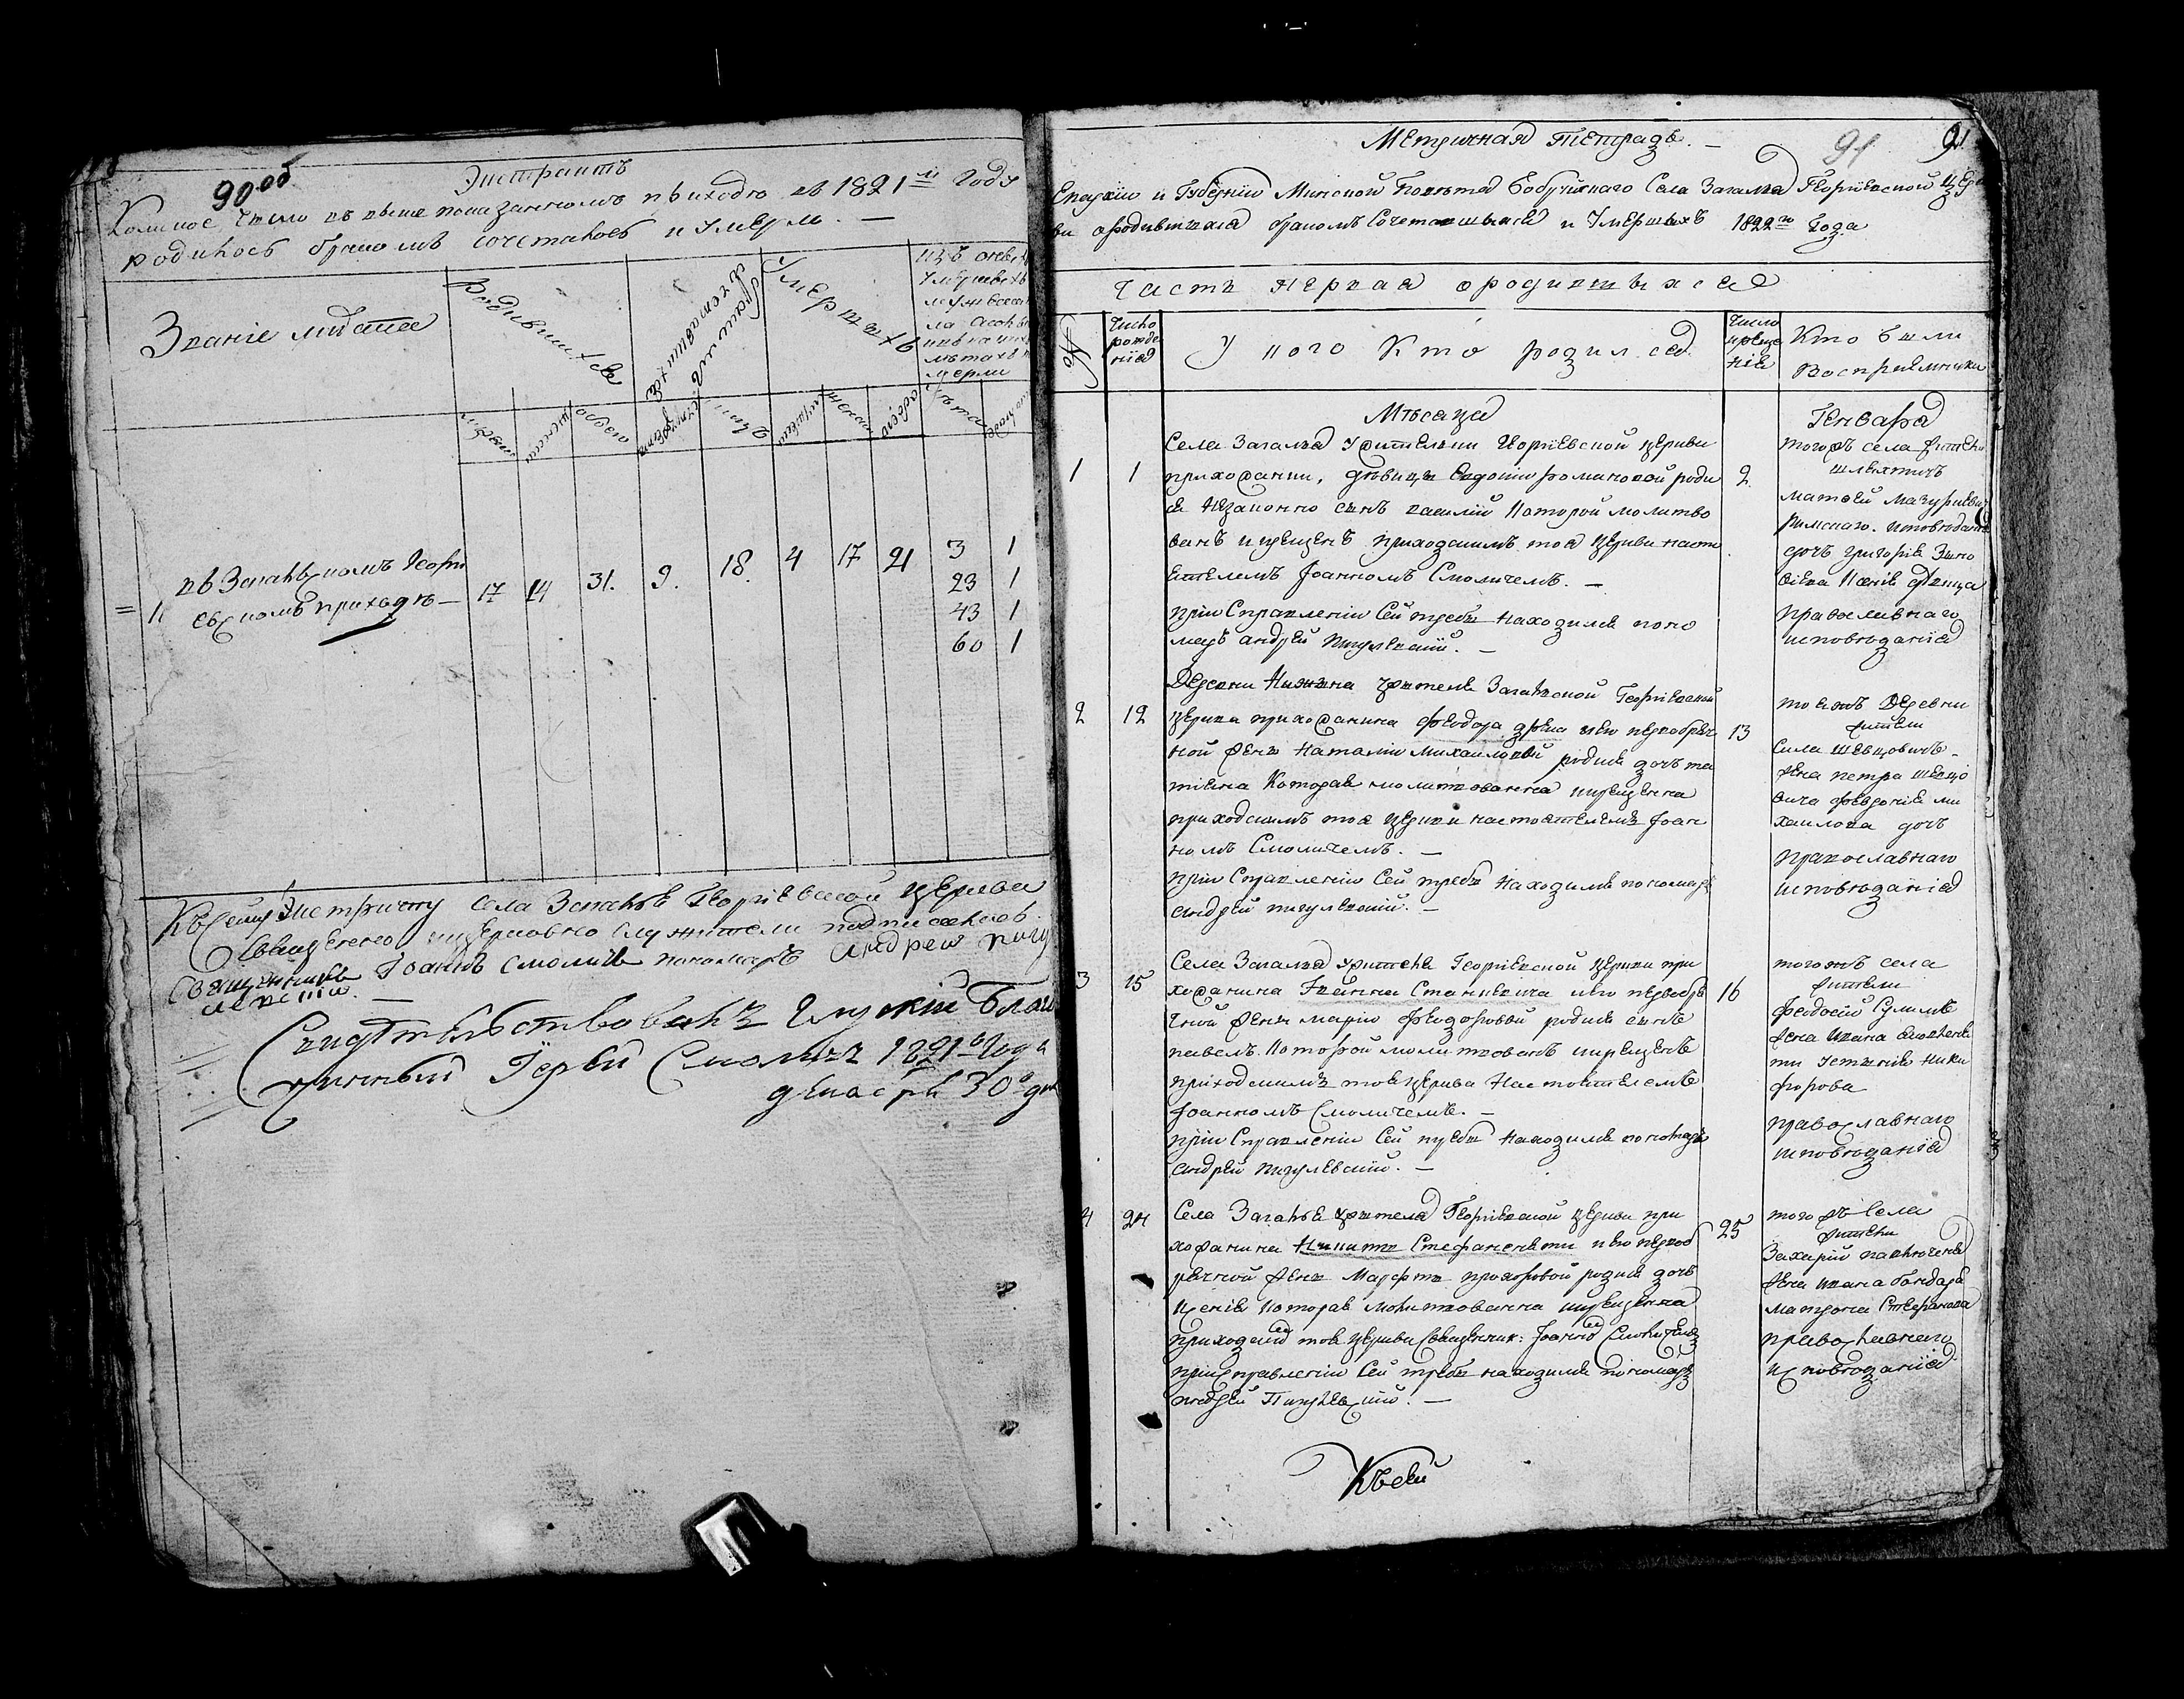 90 об
Экстрактъ
Коликое число въ выше показанномъ приходѣ въ 1821м Году
родилось бракомъ сочеталось и умерло. —
Званіе мѣстъ
Родившихся
Бракомъ сочетавшихся
Умершихъ
изъ онехъ
умершехъ
мужеска
пола
лѣтахъ
умерли
мужеска
женска
обоего
четъ
лицъ
мужеска
женска
обоего
лѣта
1. въ Загальскомъ Георги
евскомъ приходѣ — 17 14 31. 9. 18. 4 17 21 3 1
23 1
43 1
60 1
Къ сему экстракту села Загалья Георгіевской церкви
Священно и церковно служители подписались.
Священникъ Іоаннъ Смоличъ пономаръ Андрей Пигу
левскій. —
Свидѣтельствовалъ Глускій Благо
чинный Іерей Смоличъ 1821го Года
декабря 30го дня
91 91
Метричная Тетрадь. —
Епархіи и Губерніи Минской Повѣта Бобруйскаго Села Загалья Георгіевской цер
кви о родившихся бракомъ Сочетавшыхся и Умершыхъ 1822го Года
Часть первая о родившыхся
№
Число рожде нія
У кого Кто родился
Число креще нія
Кто были Воспріемники
Мѣсаца Генваря
1 1 2
Села Загалья жителки Георгіевской церкви
прихожанки, дѣвицы Евдокіи Романовой роди
ся незаконно сынъ Василій которой молитво
ванъ и крещенъ приходскимъ тоя церкви насто
ятелемъ Іоанномъ Смоличемъ. —
при Справленіи Сей требы находился поно
маръ Андрей Пигулевскій. —
тогожъ села жители
шляхтичъ
Матвей Мазуркеви
Римскаго исповѣданія
дочъ Григорія Зено
віева Ксенія дѣвица
православнаго
исповѣданія
2 12 13
Деревни жытеля Загальской Георгіевской
церкви прихожанина Феодора и его первобрач
ной жены Наталіи Михайловой родися дочъ та
тіяна которая молитвованна и крещенна
приходскимъ тоя церкви настоятелемъ Іоан
номъ Смоличемъ. —
при Справленіи Сей требы находился пономаръ
Андрей Пигулевскій. —
тоежъ Деревни
жители
Сила Шевцовичъ
жена Петра Шевцо
вича Февронія Ми
хайлова дочъ
православнаго
исповѣданія
3 15 16
Села Загалья жителя Георгіевской церкви при
хожанина Іоанна Станкевича и его первобра
чной жены Маріи Феодоровой родися сынъ
Павелъ которой молитвованъ и крещенъ
приходскимъ тоя церкви Настоятелемъ
Іоанномъ Смоличемъ. —
при Справленіи Сей требы находился пономаръ
Андрей Пигулевскій. —
тогожъ села
жители
Феодосій Сулимъ
жена Ивана
Устинія Ники
форова
православнаго
исповѣданія
4 24 25
Села Загалья жытеля Георгіевской церкви при
хожанина Никиты Стефаненяти и его первоб
рачной жены Марфы Прохоровой родися дочъ
Ксенія которая молитвованна и крещенна
приходскимъ тоя церкви Священник: Іоанномъ Смоличемъ
при справленіи Сей требы находился пономаръ
Андрей Пигулевскій. —
тогожъ Села
жители
Захарій Павлюченя
жена Ивана Бондаря
Матрона Стефанова
православнаго
исповѣданія
Къ сей